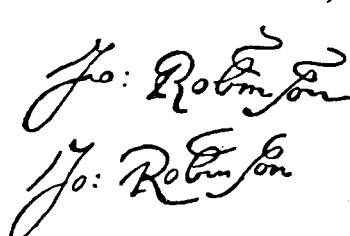 Jo: Robinson
Jo: Robinson